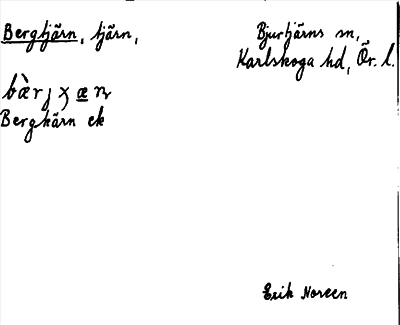 Bergtjärn, tjärn,
Bjurtjärns sn,
Karlskoga hd, Ör. l.
bær̀j χ æ n̥
Bergkärn ek
Erik Noreen